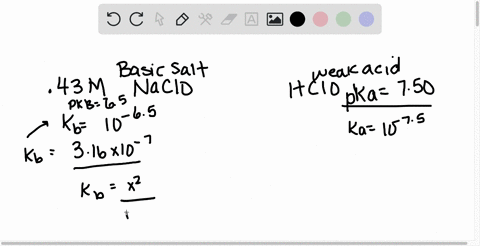 Basic Salt
.43 M NaClO
pKb = 6.5
Kb = 10^-6.5
Kb = 3.16 x 10^-7
Kb = x²
weak acid
HClO pKa = 7.50
Ka = 10^-7.5